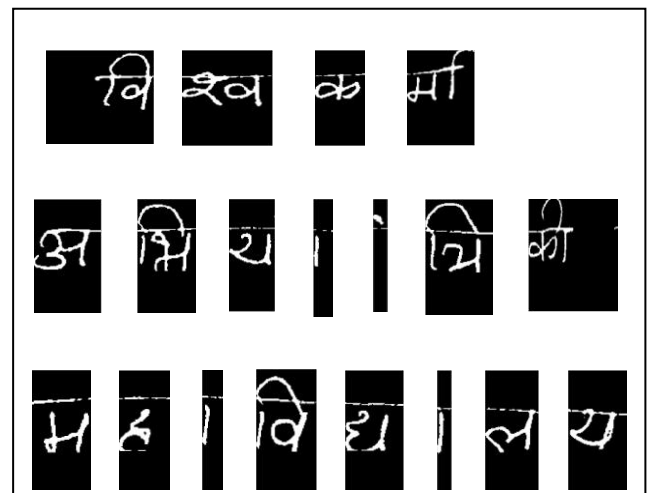 विश्वकर्मा
अभियांत्रिकी
महाविद्यालय